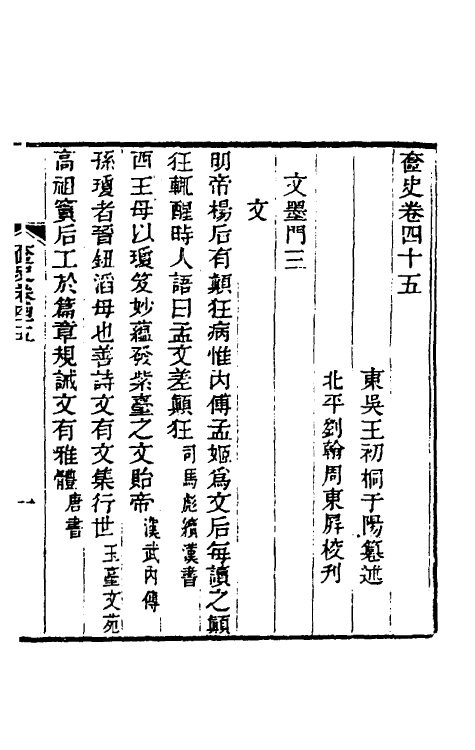 奩史卷四十五
東吳王初桐于陽纂述
北平劉翰周東屛校刊
文墨門三
文
明帝楊后有顛狂病惟內傅孟姬爲文后每讀之顛
狂輒醒時人語曰孟文差顛狂司馬彪續漢書
西王母以瓊笈妙蘊發紫臺之文貽帝漢武內傳
孫瓊者晉鈕滔母也善詩文有文集行世玉臺文苑
高祖竇后工於篇章規誡文有雅體唐書
奩史卷四十五
一